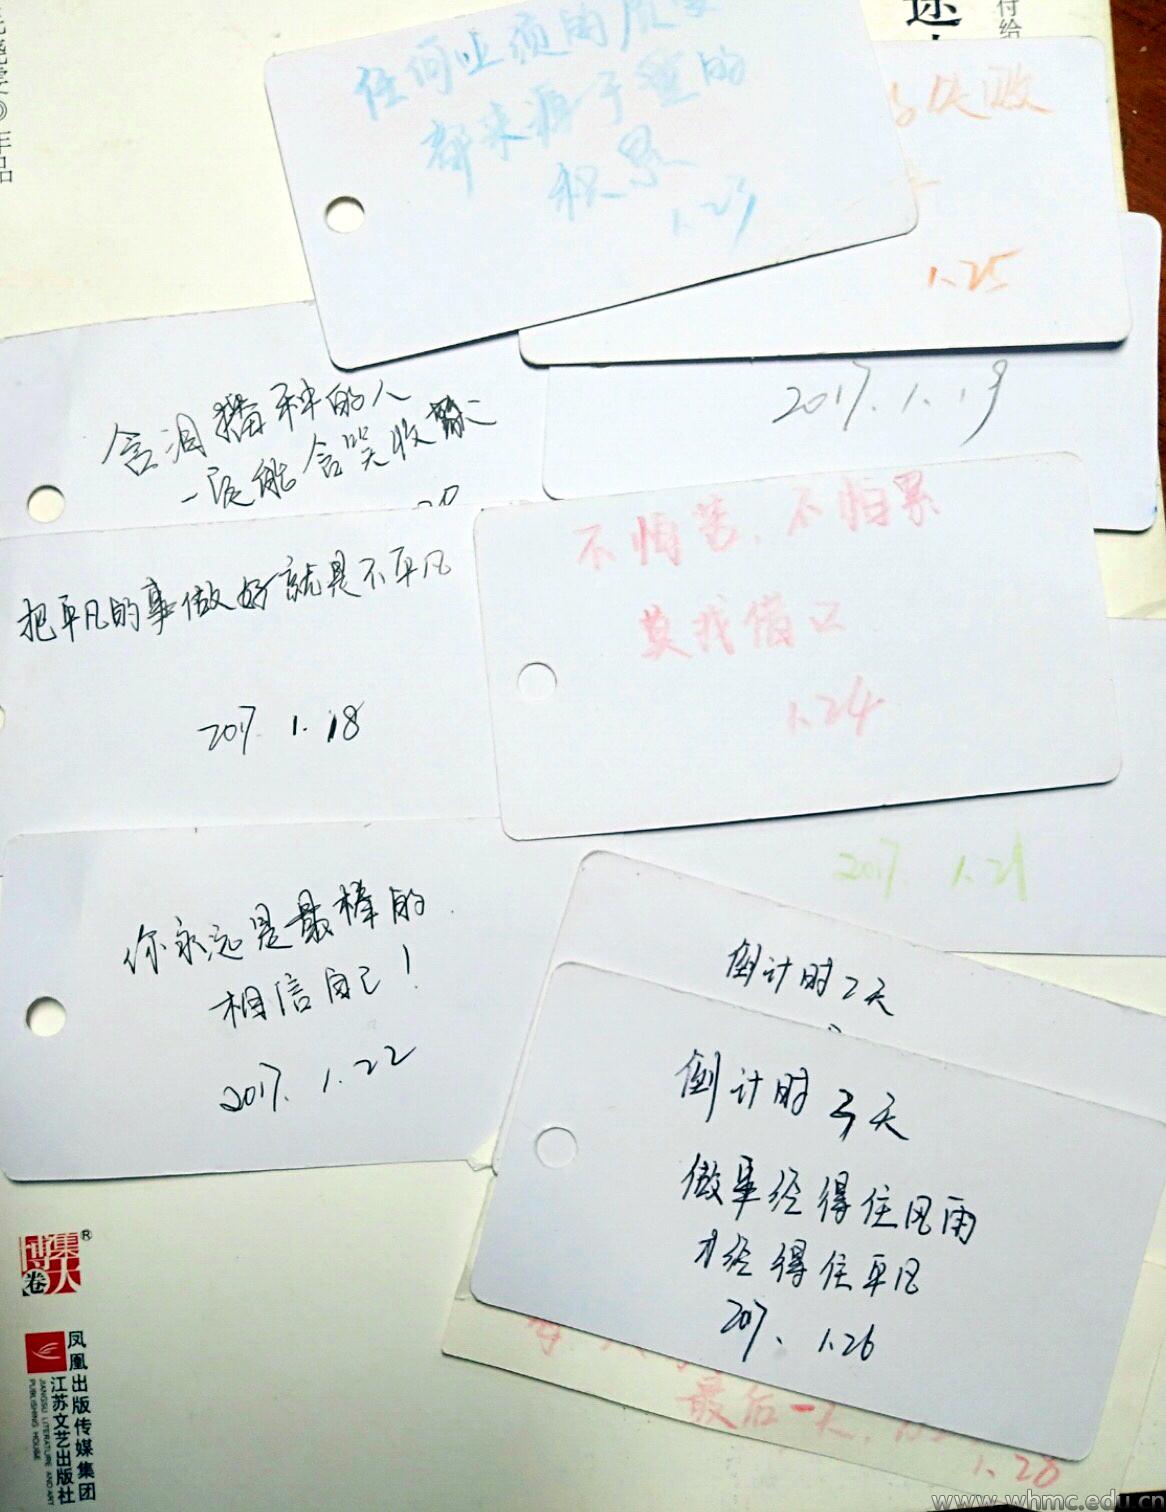 付给
任何业绩的质变
都来源于量的
积累
1.23
失败
1.25
2017.1.19
含泪播种的人
一定能含笑收获
20
不怕苦，不怕累
莫找借口
1.24
把平凡的事做好就是不平凡
2017.1.18
2017.1.21
你永远是最棒的
相信自己！
2017.1.22
倒计时2天
倒计时3天
做事经得住风雨
才经得住平凡
2017.1.26
最后一天，
1.28
博集天卷®
凤凰出版传媒集团
江苏文艺出版社
JIANGSU LITERATURE AND ART
PUBLISHING HOUSE
www.whmc.edu.cn